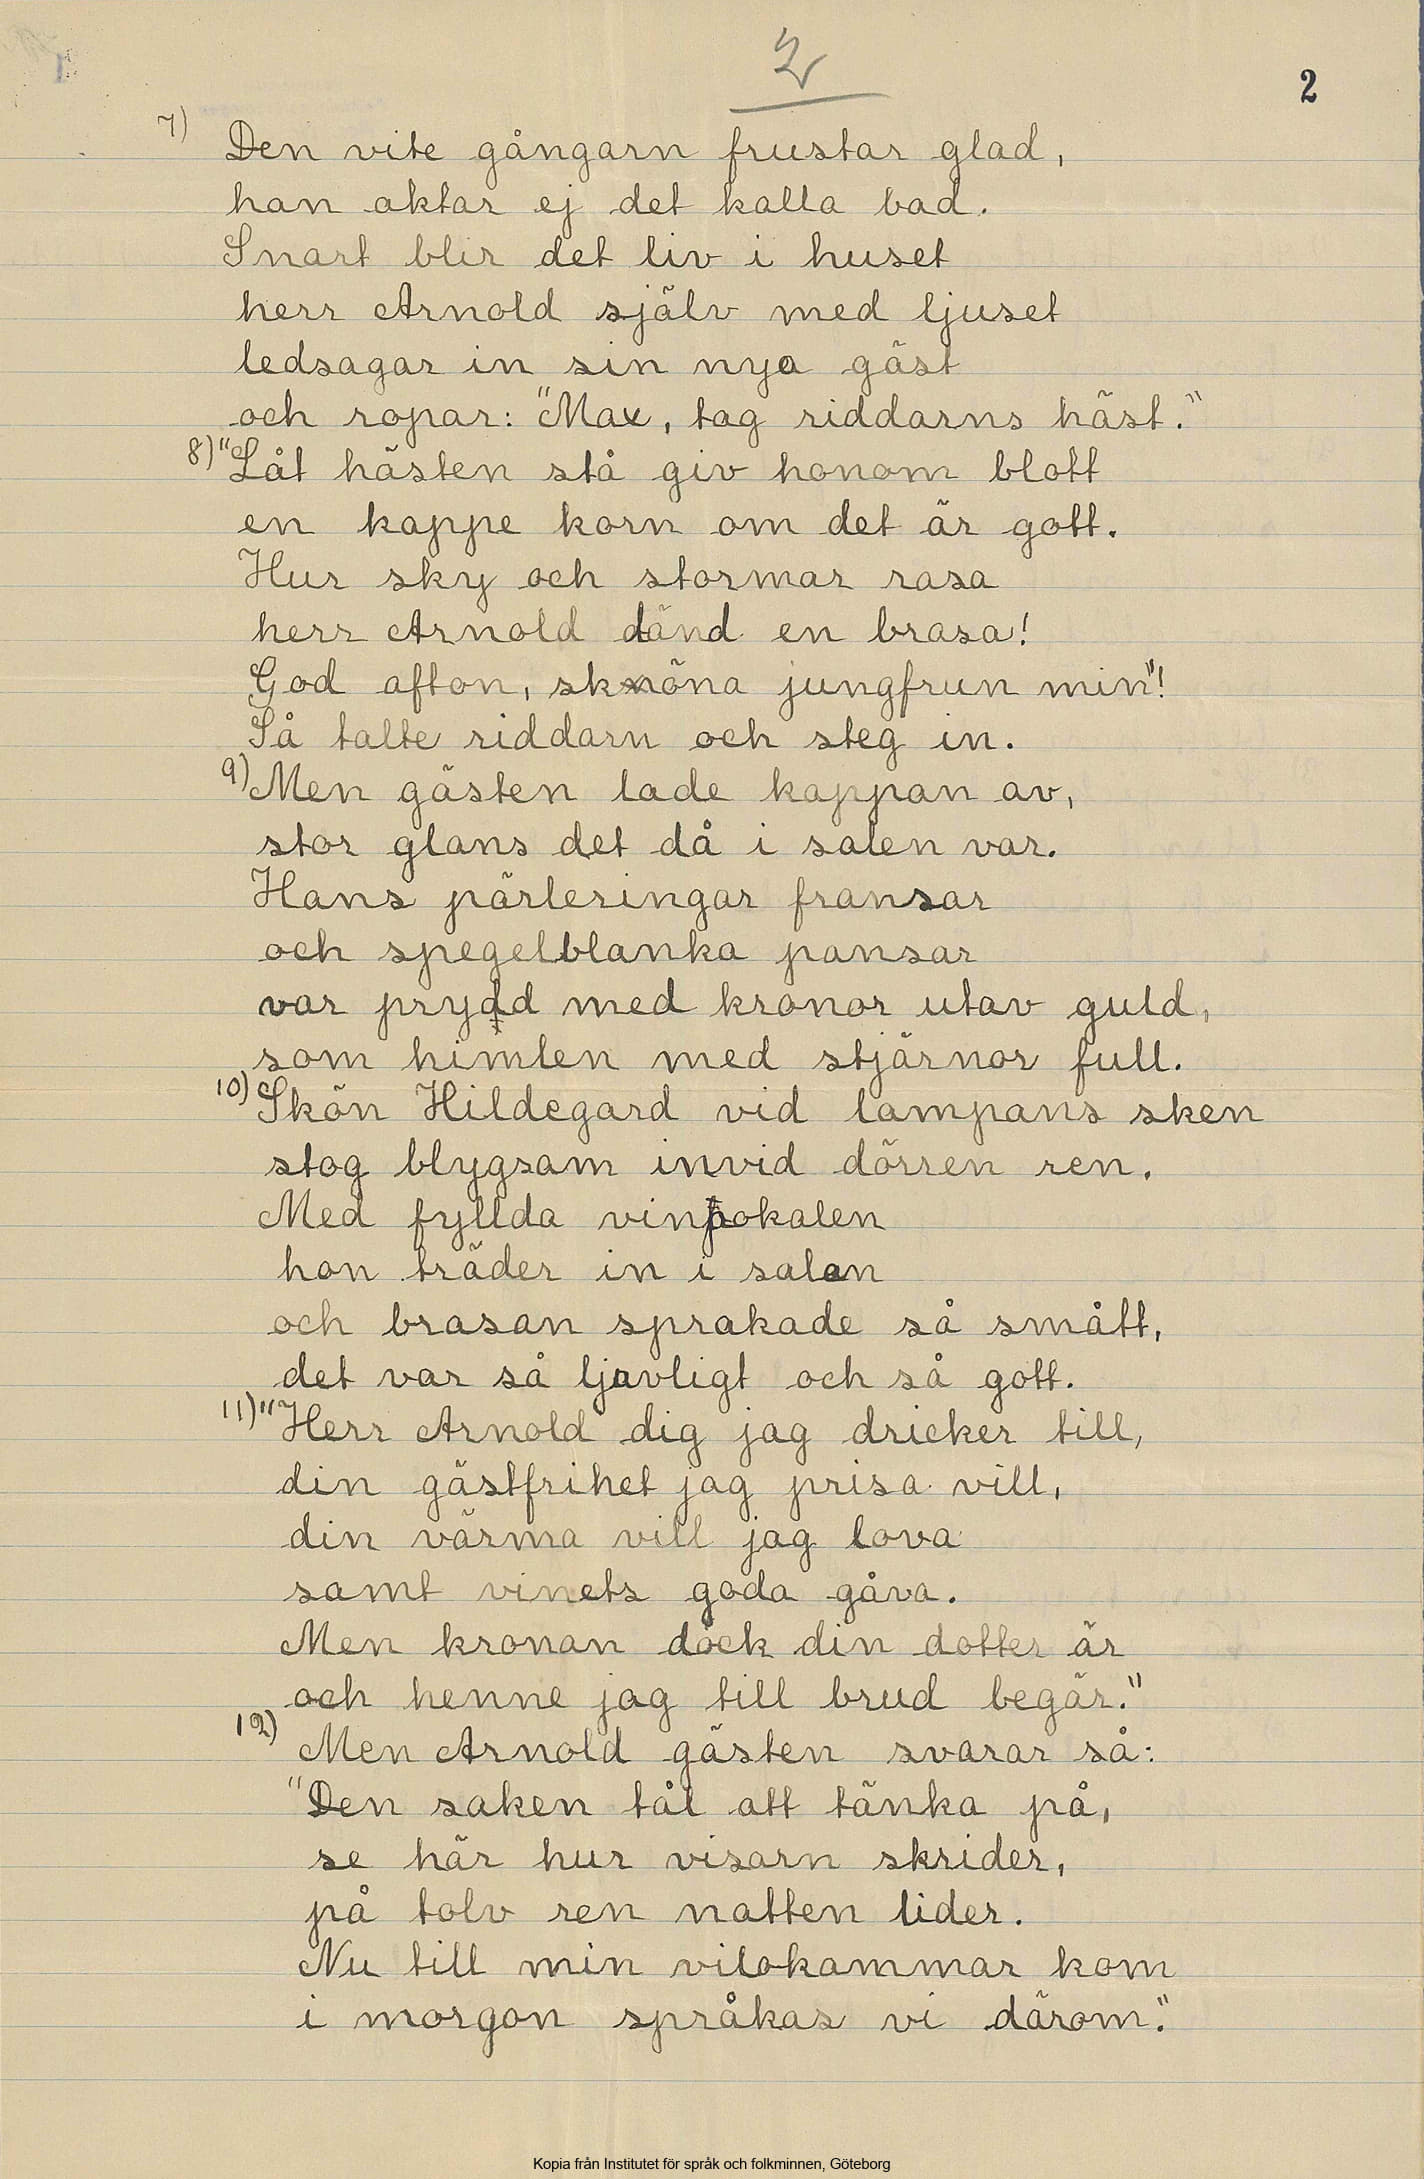 2
2
7) Den vite gångarn frustar glad,
han aktar ej det kalla bad.
Snart blir det liv i huset
herr Arnold själv med ljuset
ledsagar in sin nya gäst
och ropar: "Max, tag riddarns häst."
8) "Låt hästen stå giv honom blott
en kappe korn om det är gott.
Hur sky och stormar rasa
herr Arnold tänd en brasa!
God afton, sköna jungfrun min"!
Så talte riddarn och steg in.
9) Men gästen lade kappan av,
stor glans det då i salen var.
Hans pärleringar fransar
och spegelblanka pansar
var prydd med kronor utav guld,
som himlen med stjärnor full.
10) Skön Hildegard vid lampans sken
stog blygsam invid dörren ren.
Med fyllda vinpokalen
hon träder in i salen
och brasan sprakade så smått,
det var så ljuvligt och så gott.
11) "Herr Arnold dig jag dricker till,
din gästfrihet jag prisa vill,
din värma vill jag lova
samt vinets goda gåva.
Men kronan dock din dotter är
och henne jag till brud begär."
12) Men Arnold gästen svarar så:
"Den saken tål att tänka på,
se här hur visarn skrider,
på tolv ren natten lider.
Nu till min vilokammar kom
i morgon språkas vi därom."
Kopia från Institutet för språk och folkminnen, Göteborg